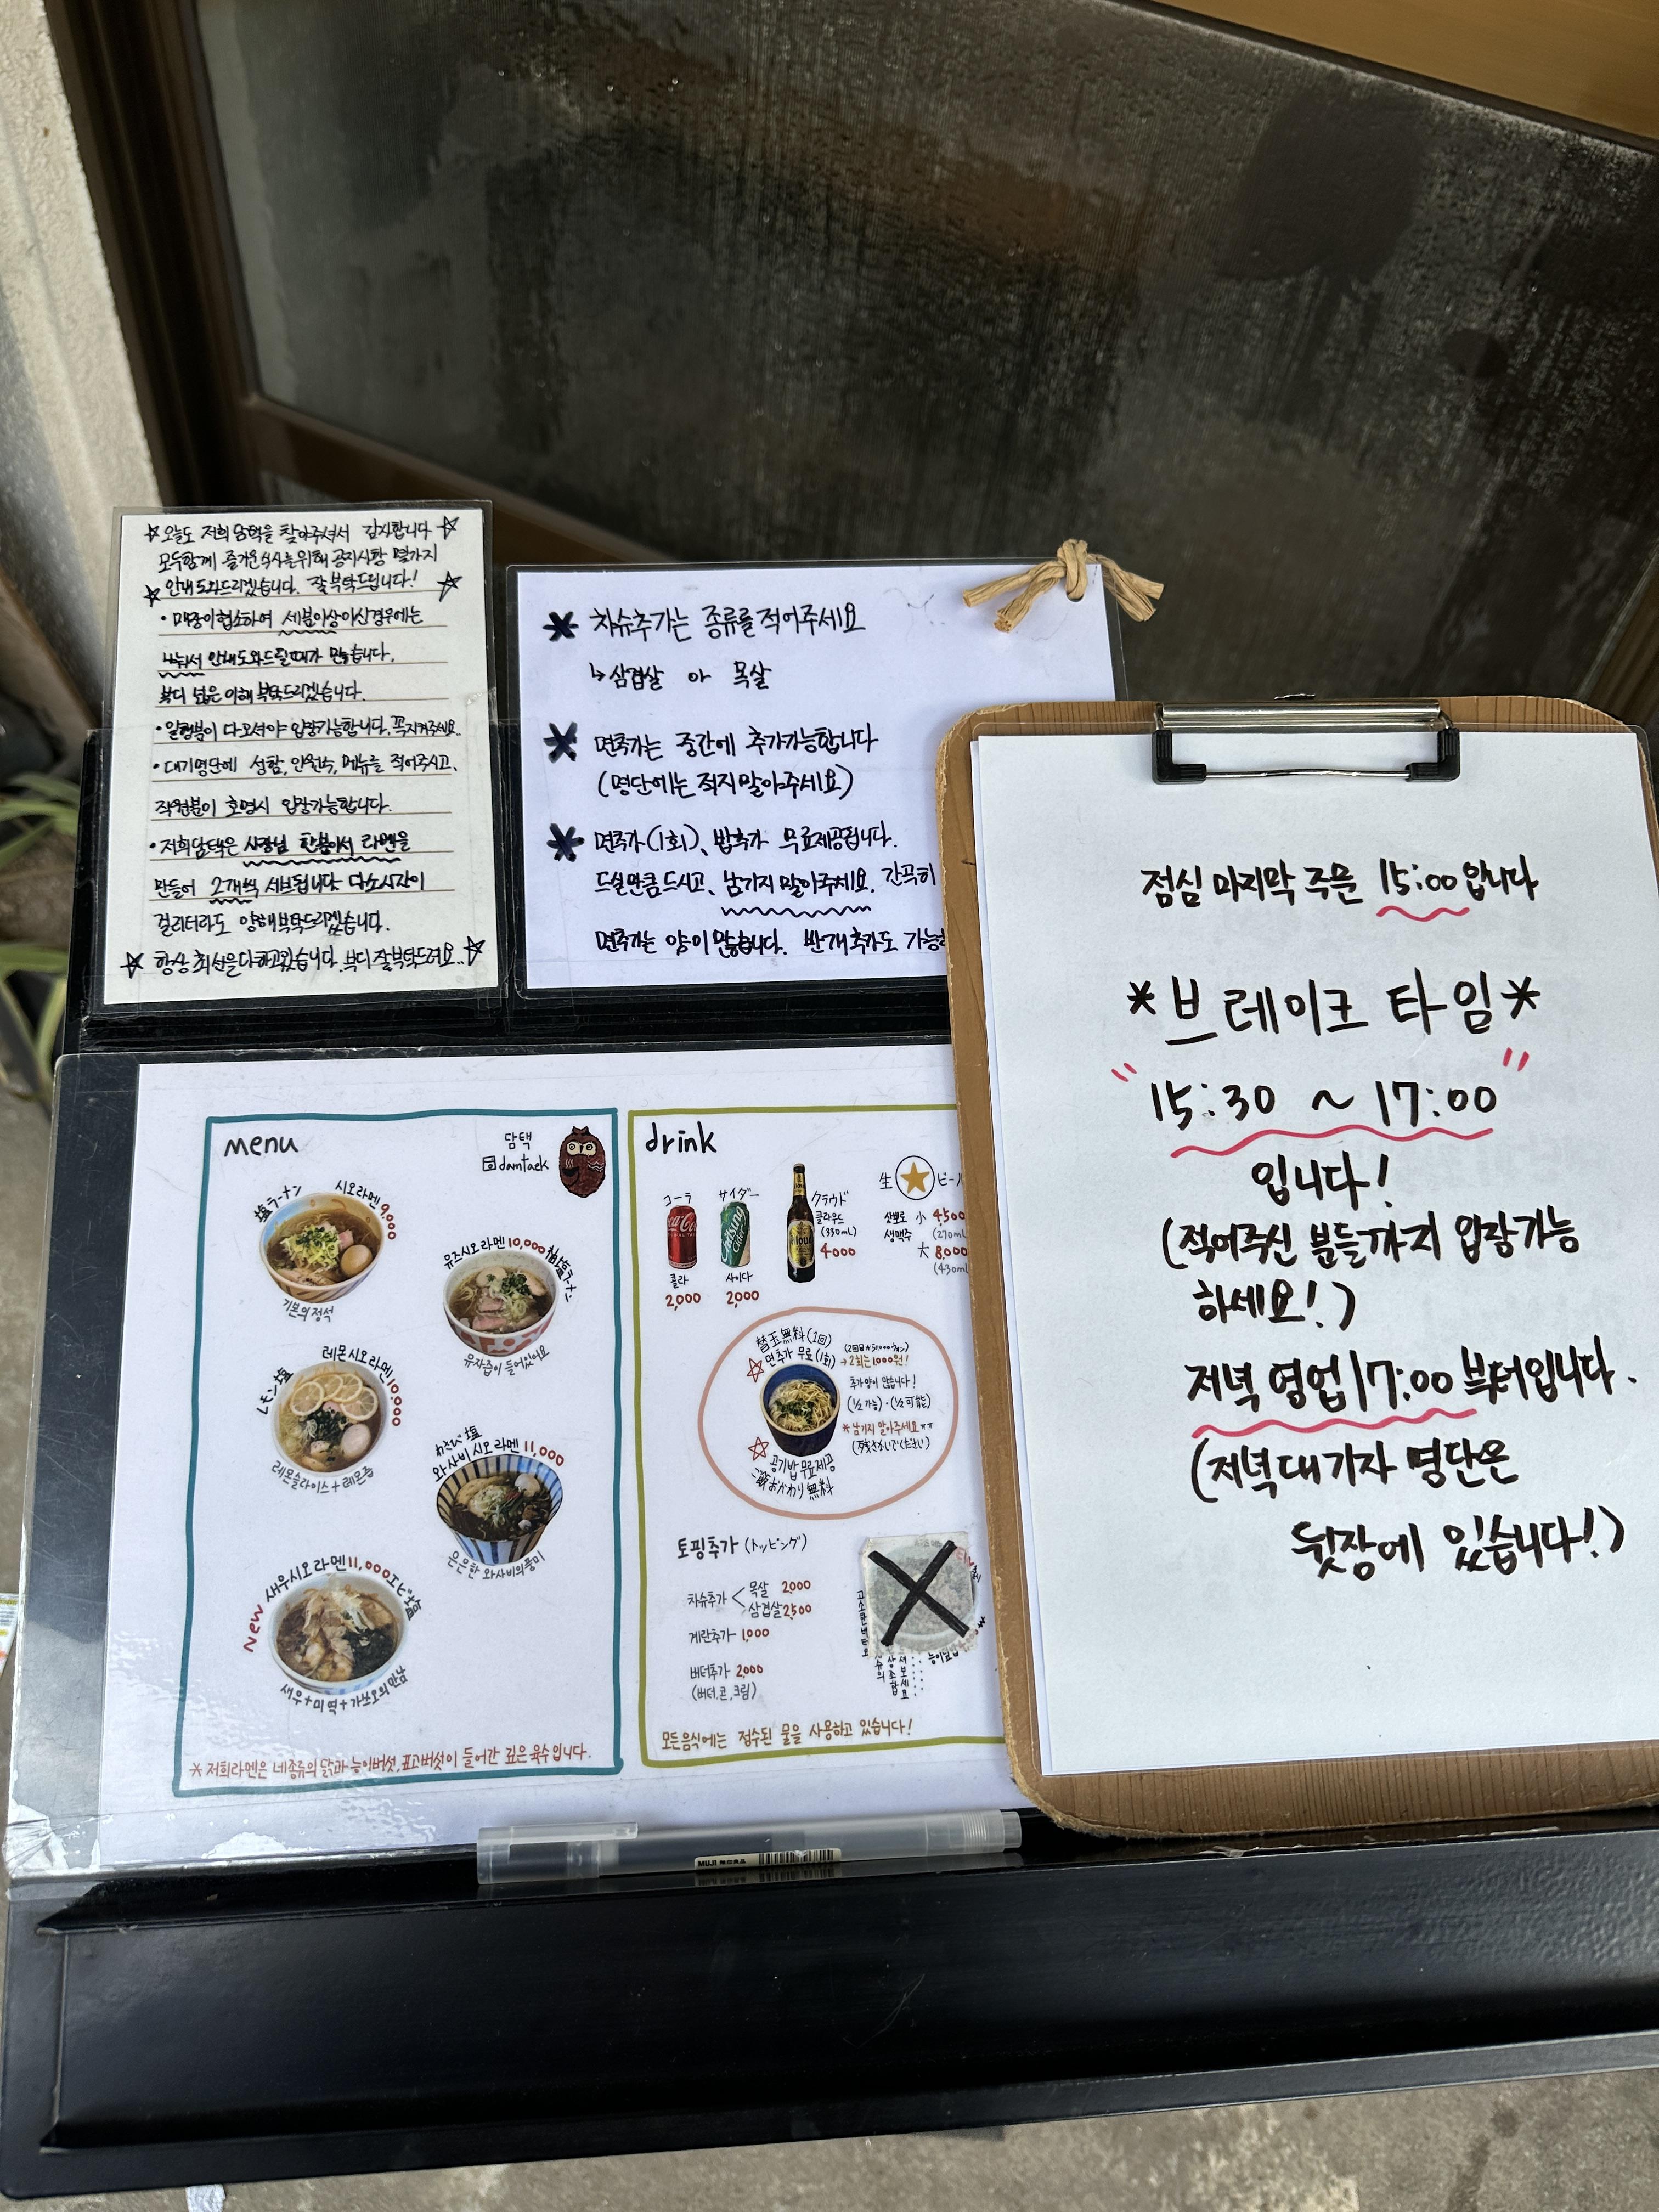 오늘도 저희 담택을 찾아주셔서 감사합니다
모두함께 즐거운식사를위해 공지사항 몇가지
안내도와드리겠습니다. 잘부탁드립니다!
• 매장이협소하여 세분이상이신경우에는
나눠서 안내도와드릴때가 많습니다.
부디 넓은 이해 부탁드리겠습니다.
• 일행분이 다오셔야 입장가능합니다. 꼭지켜주세요.
• 대기명단에 성함, 인원수, 메뉴를 적어주시고,
직원분이 호명시 입장가능합니다.
• 저희담택은 사장님 한분이서 라멘을
만들어 2개씩 서브됩니다. 다소시간이
걸리더라도 양해부탁드리겠습니다.
항상 최선을다하고있습니다. 부디 잘부탁드려요..
* 차슈추가는 종류를적어주세요
↳삼겹살 or 목살
* 면추가는 중간에 추가가능합니다
(명단에는 적지말아주세요)
* 면추가(1회), 밥추가 무료제공됩니다.
드실만큼 드시고, 남기지 말아주세요. 간곡히
면추가는 양이 많습니다. 반개추가도 가능
점심 마지막 주문 15:00입니다
*브레이크 타임*
"15:30 ~ 17:00"
입니다!
(적어주신 분들까지 입장가능
하세요!)
저녁 영업17:00 부터입니다.
(저녁대기자 명단은
뒷장에 있습니다!)
menu
담택
damtaek
塩ラーメン 시오라멘 9,000
기본의정석
유즈시오라멘 10,000 柚塩ラーメン
유자즙이 들어있어요
レモン塩 레몬시오라멘 10,000
레몬슬라이스+레몬즙
わさび塩
와사비 시오 라멘 11,000
은은한 와사비의풍미
New 새우시오라멘 11,000 エビ塩
새우+미역+가쓰오의만남
* 저희라멘은 네종류의 닭과 능이버섯, 표고버섯이 들어간 깊은 육수입니다.
drink
コーラ
콜라
2,000
サイダー
사이다
2,000
クラウド
클라우드
(330mL)
4000
生 ★ ビール
삿뽀로 小 4,500
생맥주 (270mL
大 8,000
(430mL
替玉無料(1回)
면추가 무료(1회)
→2회는1,000원!
추가양이 많습니다!
(½가능)・(½可能)
*남기지 말아주세요ㅠㅠ
공기밥 무료제공
ご飯おかわり無料
토핑추가 (トッピング)
차슈추가 < 목살 2,000
삼겹살 2,500
계란추가 1,000
버터추가 2,000
(버터, 콘, 크림)
모든음식에는 정수된 물을 사용하고 있습니다!
MUJI 無印良品